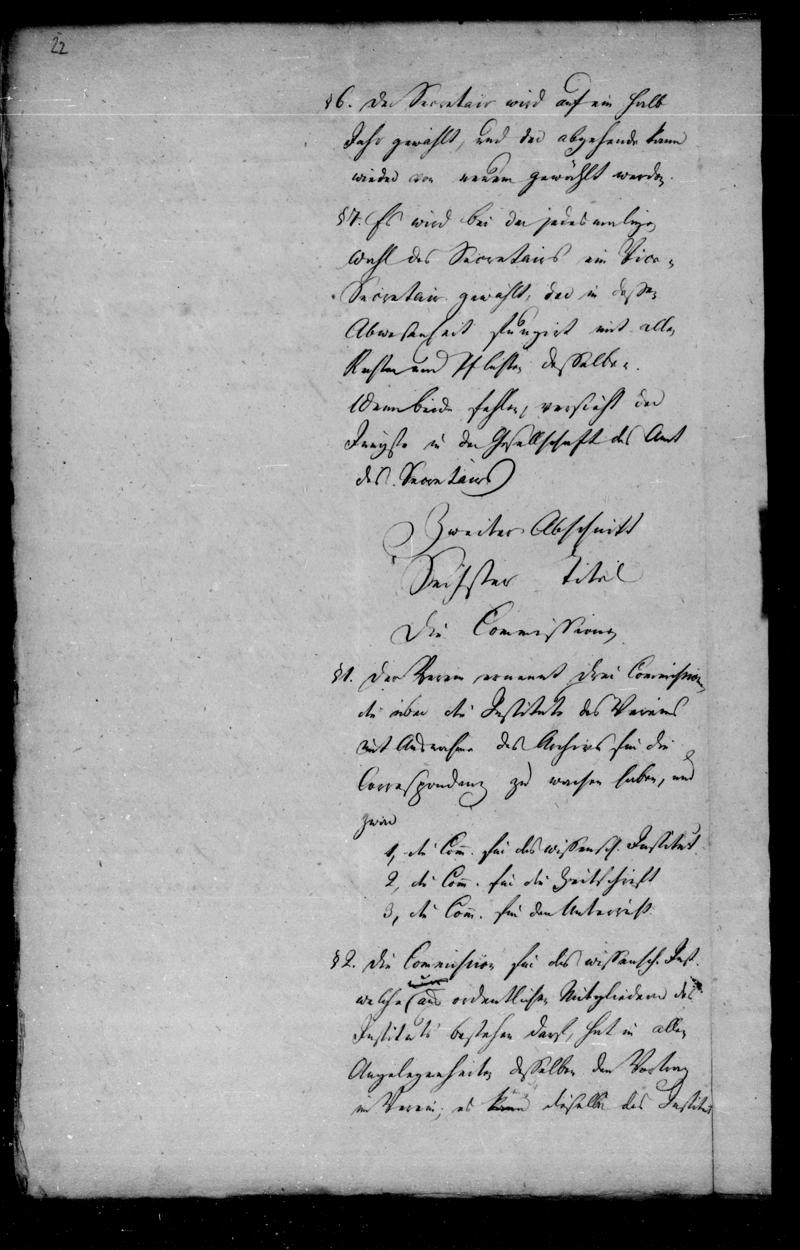 22
§6. Der Secretair wird auf ein halb
Jahr gewählt, und der abgehende kann
wieder von neuem gewählt werden.
§7. Es wird bei der jedesmaligen
Wahl des Secretairs ein Vice-
Secretair gewählt, der in dessen
Abwesenheit fungirt mit allen
Rechten und Pflichten desselben.
Wenn beide fehlen, versieht der
Jüngste in der Gesellschaft das Amt
des Secretairs
Zweiter Abschnitt
Sechster Titel
Die Commissionen
§1. Der Verein ernennt drei Commissionen
die über die Institute des Vereins
mit Ausnahme des Archivs für die
Correspondenz zu wachen haben, und
zwar
1, die Com̅. für das wissensch. Institut
2, die Com̅. für die Zeitschrift
3, die Com̅. für den Unterricht
§2. Die Commission für das wissensch. Inst.
welche nur aus ordentlichen Mitgliedern des
Instituts bestehen darf, hat in allen
Angelegenheiten desselben den Vortrag
im Verein; es kann dieselbe das Institut